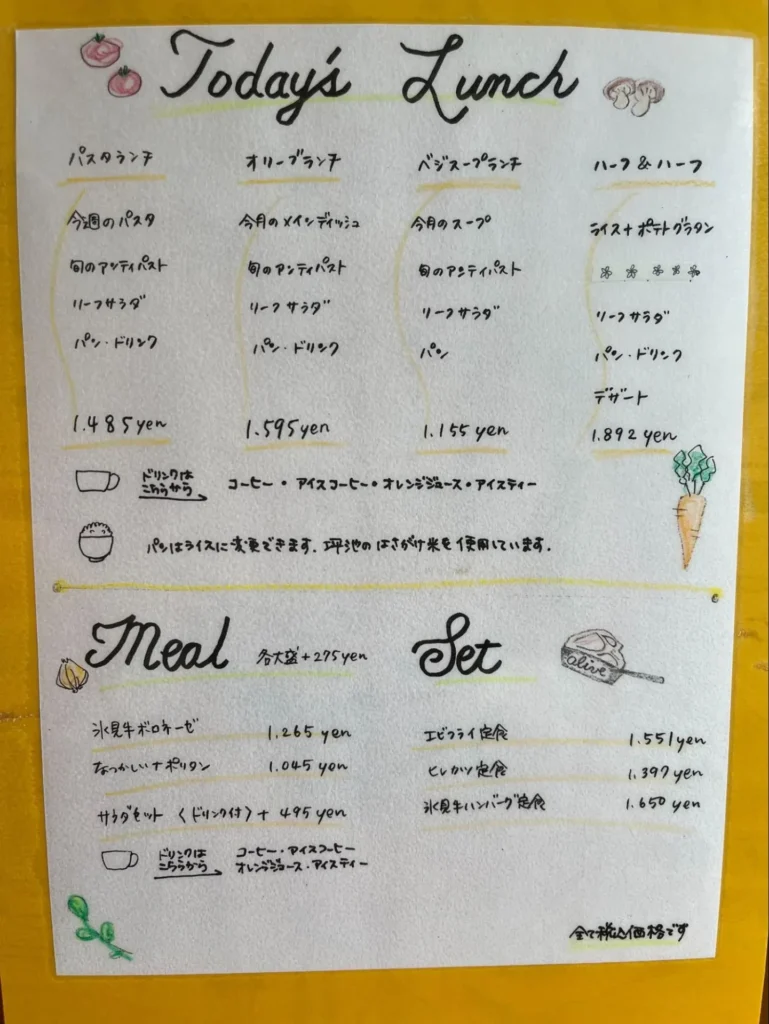 Today's Lunch
パスタランチ
今週のパスタ
旬のアンティパスト
リーフサラダ
パン・ドリンク
1.485yen
オリーブランチ
今月のメインディッシュ
旬のアンティパスト
リーフサラダ
パン・ドリンク
1.595yen
ベジスープランチ
今月のスープ
旬のアンティパスト
リーフサラダ
パン
1.155yen
ハーフ&ハーフ
ライス+ポテトグラタン
リーフサラダ
パン・ドリンク
デザート
1.892yen
ドリンクは
こちらから
コーヒー・アイスコーヒー・オレンジジュース・アイスティー
パンはライスに変更できます.坪池のはさがけ米を使用しています.
Meal 各大盛+275yen
氷見牛ボロネーゼ 1.265yen
なつかしいナポリタン 1.045yen
サラダセット〈ドリンク付〉+495yen
ドリンクは
こちらから
コーヒー・アイスコーヒー
オレンジジュース・アイスティー
Set
alive
エビフライ定食 1.551yen
ヒレカツ定食 1.397yen
氷見牛ハンバーグ定食 1.650yen
全て税込価格です